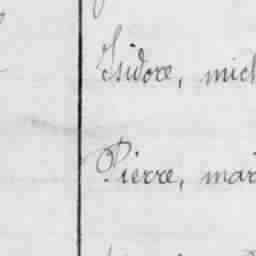 Isidore, mich
Pierre, mari